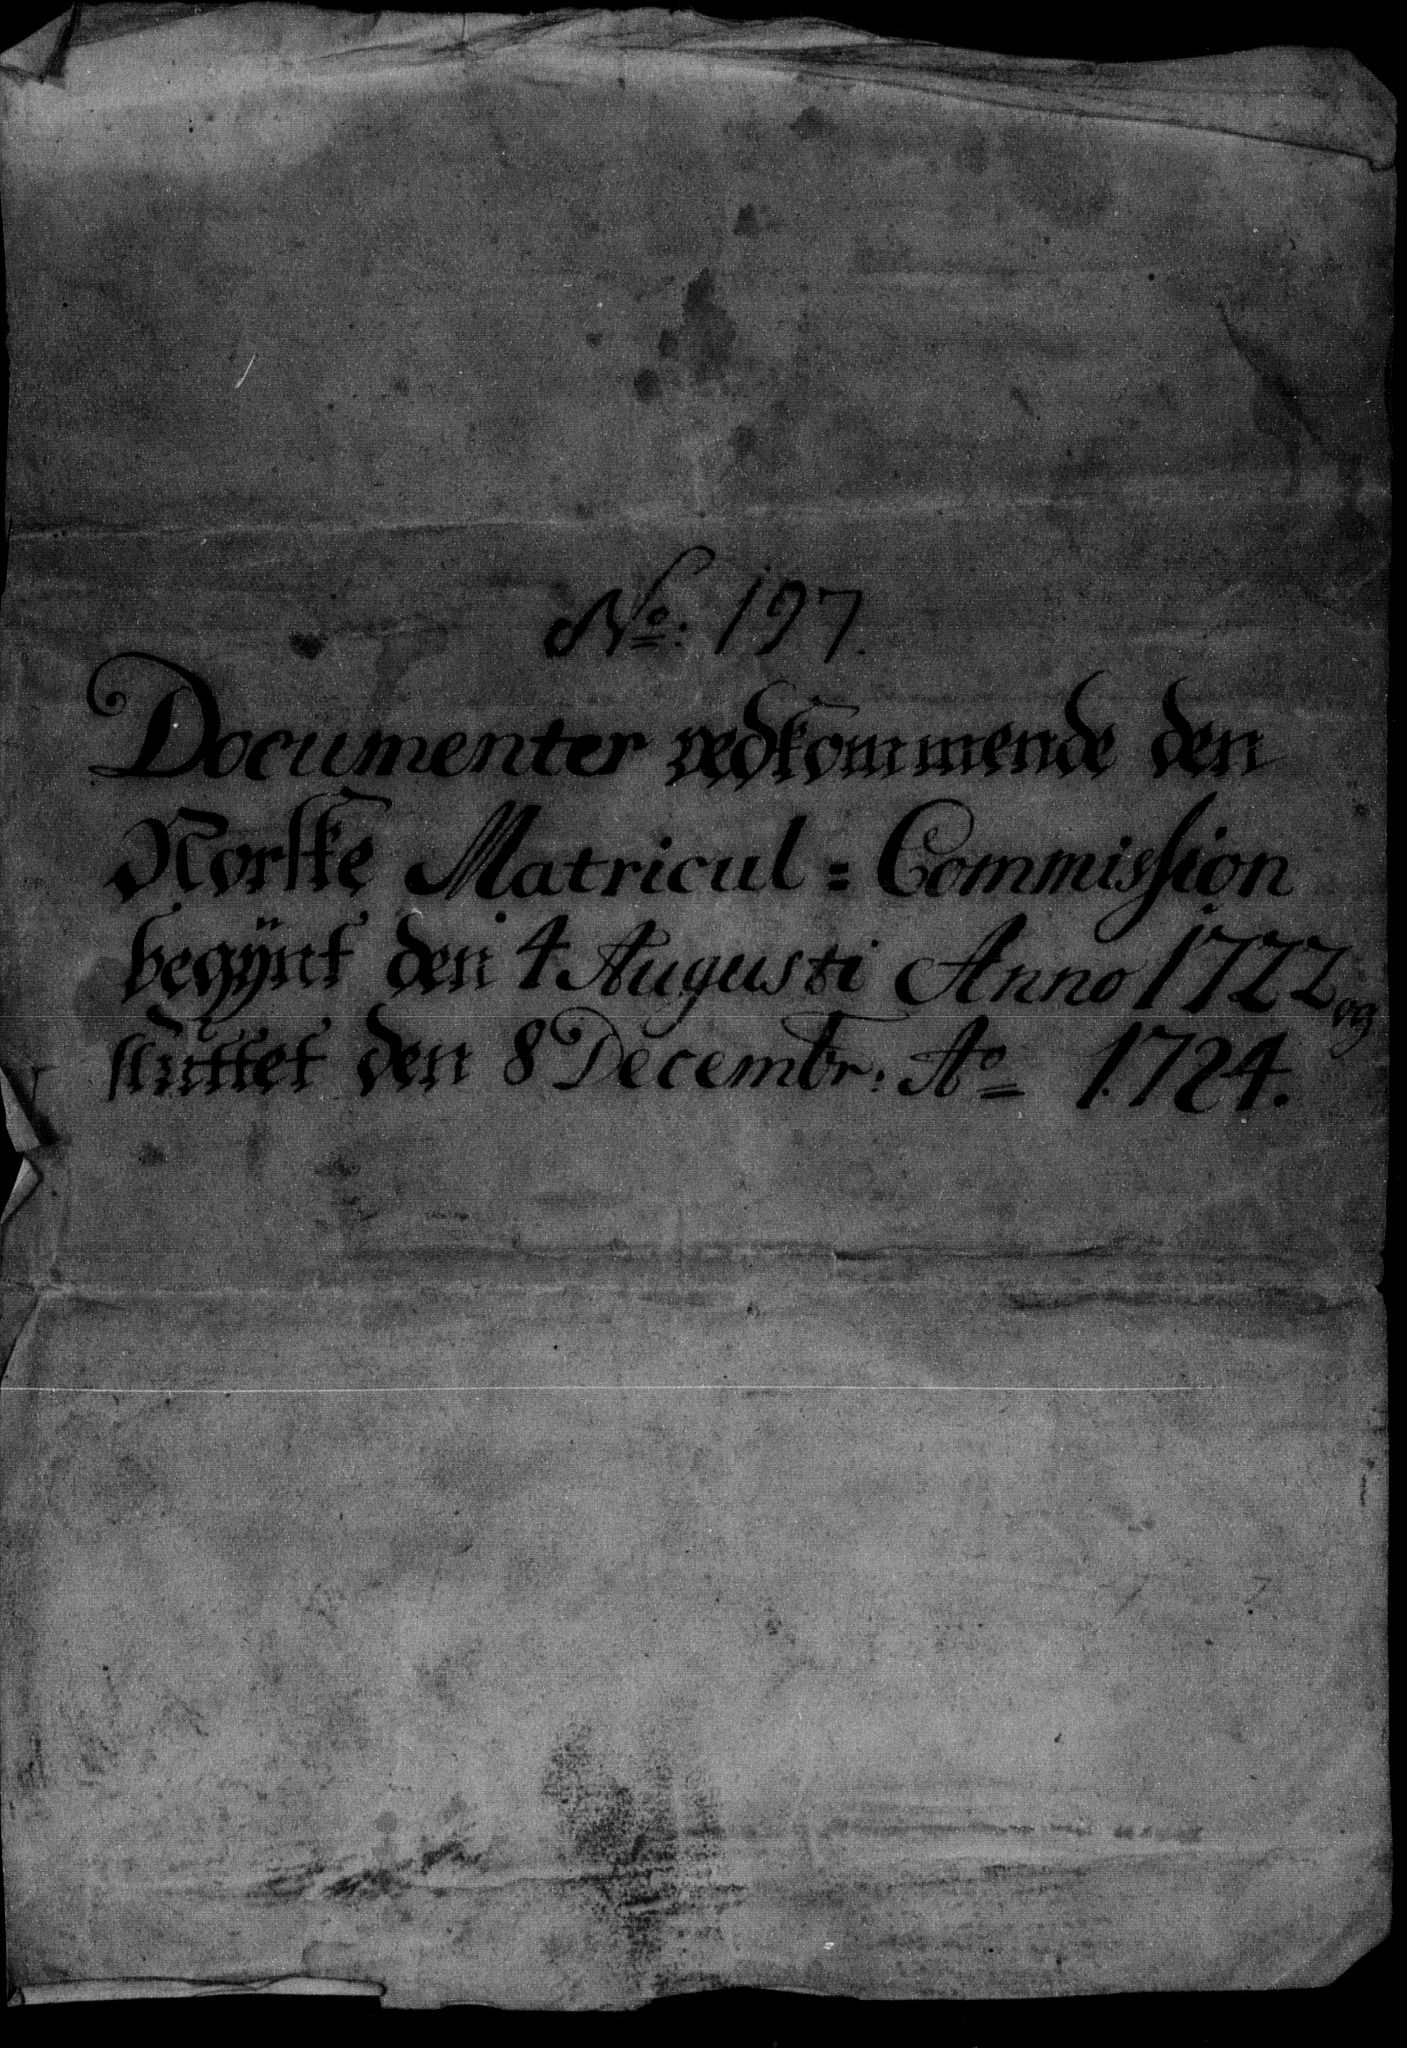 No: 197.
Documenter vedkommende den
Norske Matricul=Commission
begÿnt den 4 Augusti Anno 1722 og
sluttet den 8 Decembr: Ao 1724.